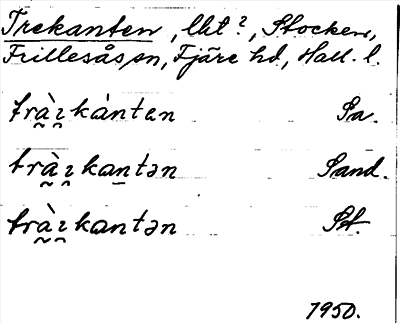 Trekanten, lht?, Stocken,
Frillesås sn, Fjäre hd, Hall. l.
fràɪkántən Sa.
tràɪkantən Sand.
tràɪkantən St.
1950.